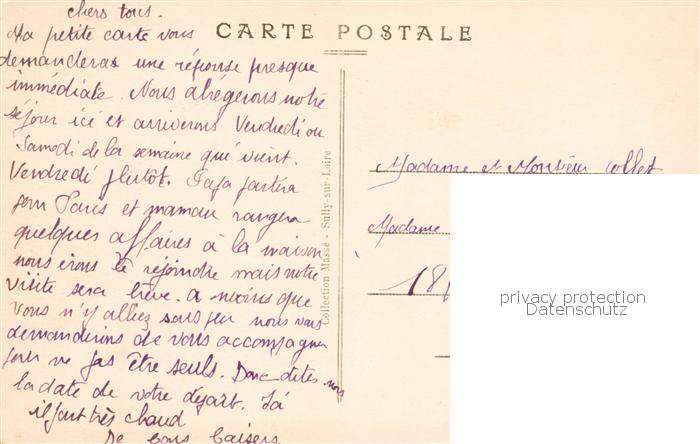 chers tous.
Ma petite carte vous
demandera une réponse presque
immédiate. Nous abrégerons notre
séjour ici et arriverons Vendredi ou
Samedi de la semaine qui vient.
Vendredi plutôt. Papa partira
pour Paris et maman rangera
quelques affaires à la maison
nous irons le rejoindre mais notre
visite sera brève. a moins que
vous n'y alliez sous peu nous vous
demanderions de vous accompagner
pour ne pas être seuls. Donc dites nous
la date de votre départ. Ici
il fait très chaud
De bons baisers
CARTE POSTALE
Collection Massé - Sully-sur-Loire
Madame et Monsieur Collet
Madame
18
privacy protection
Datenschutz